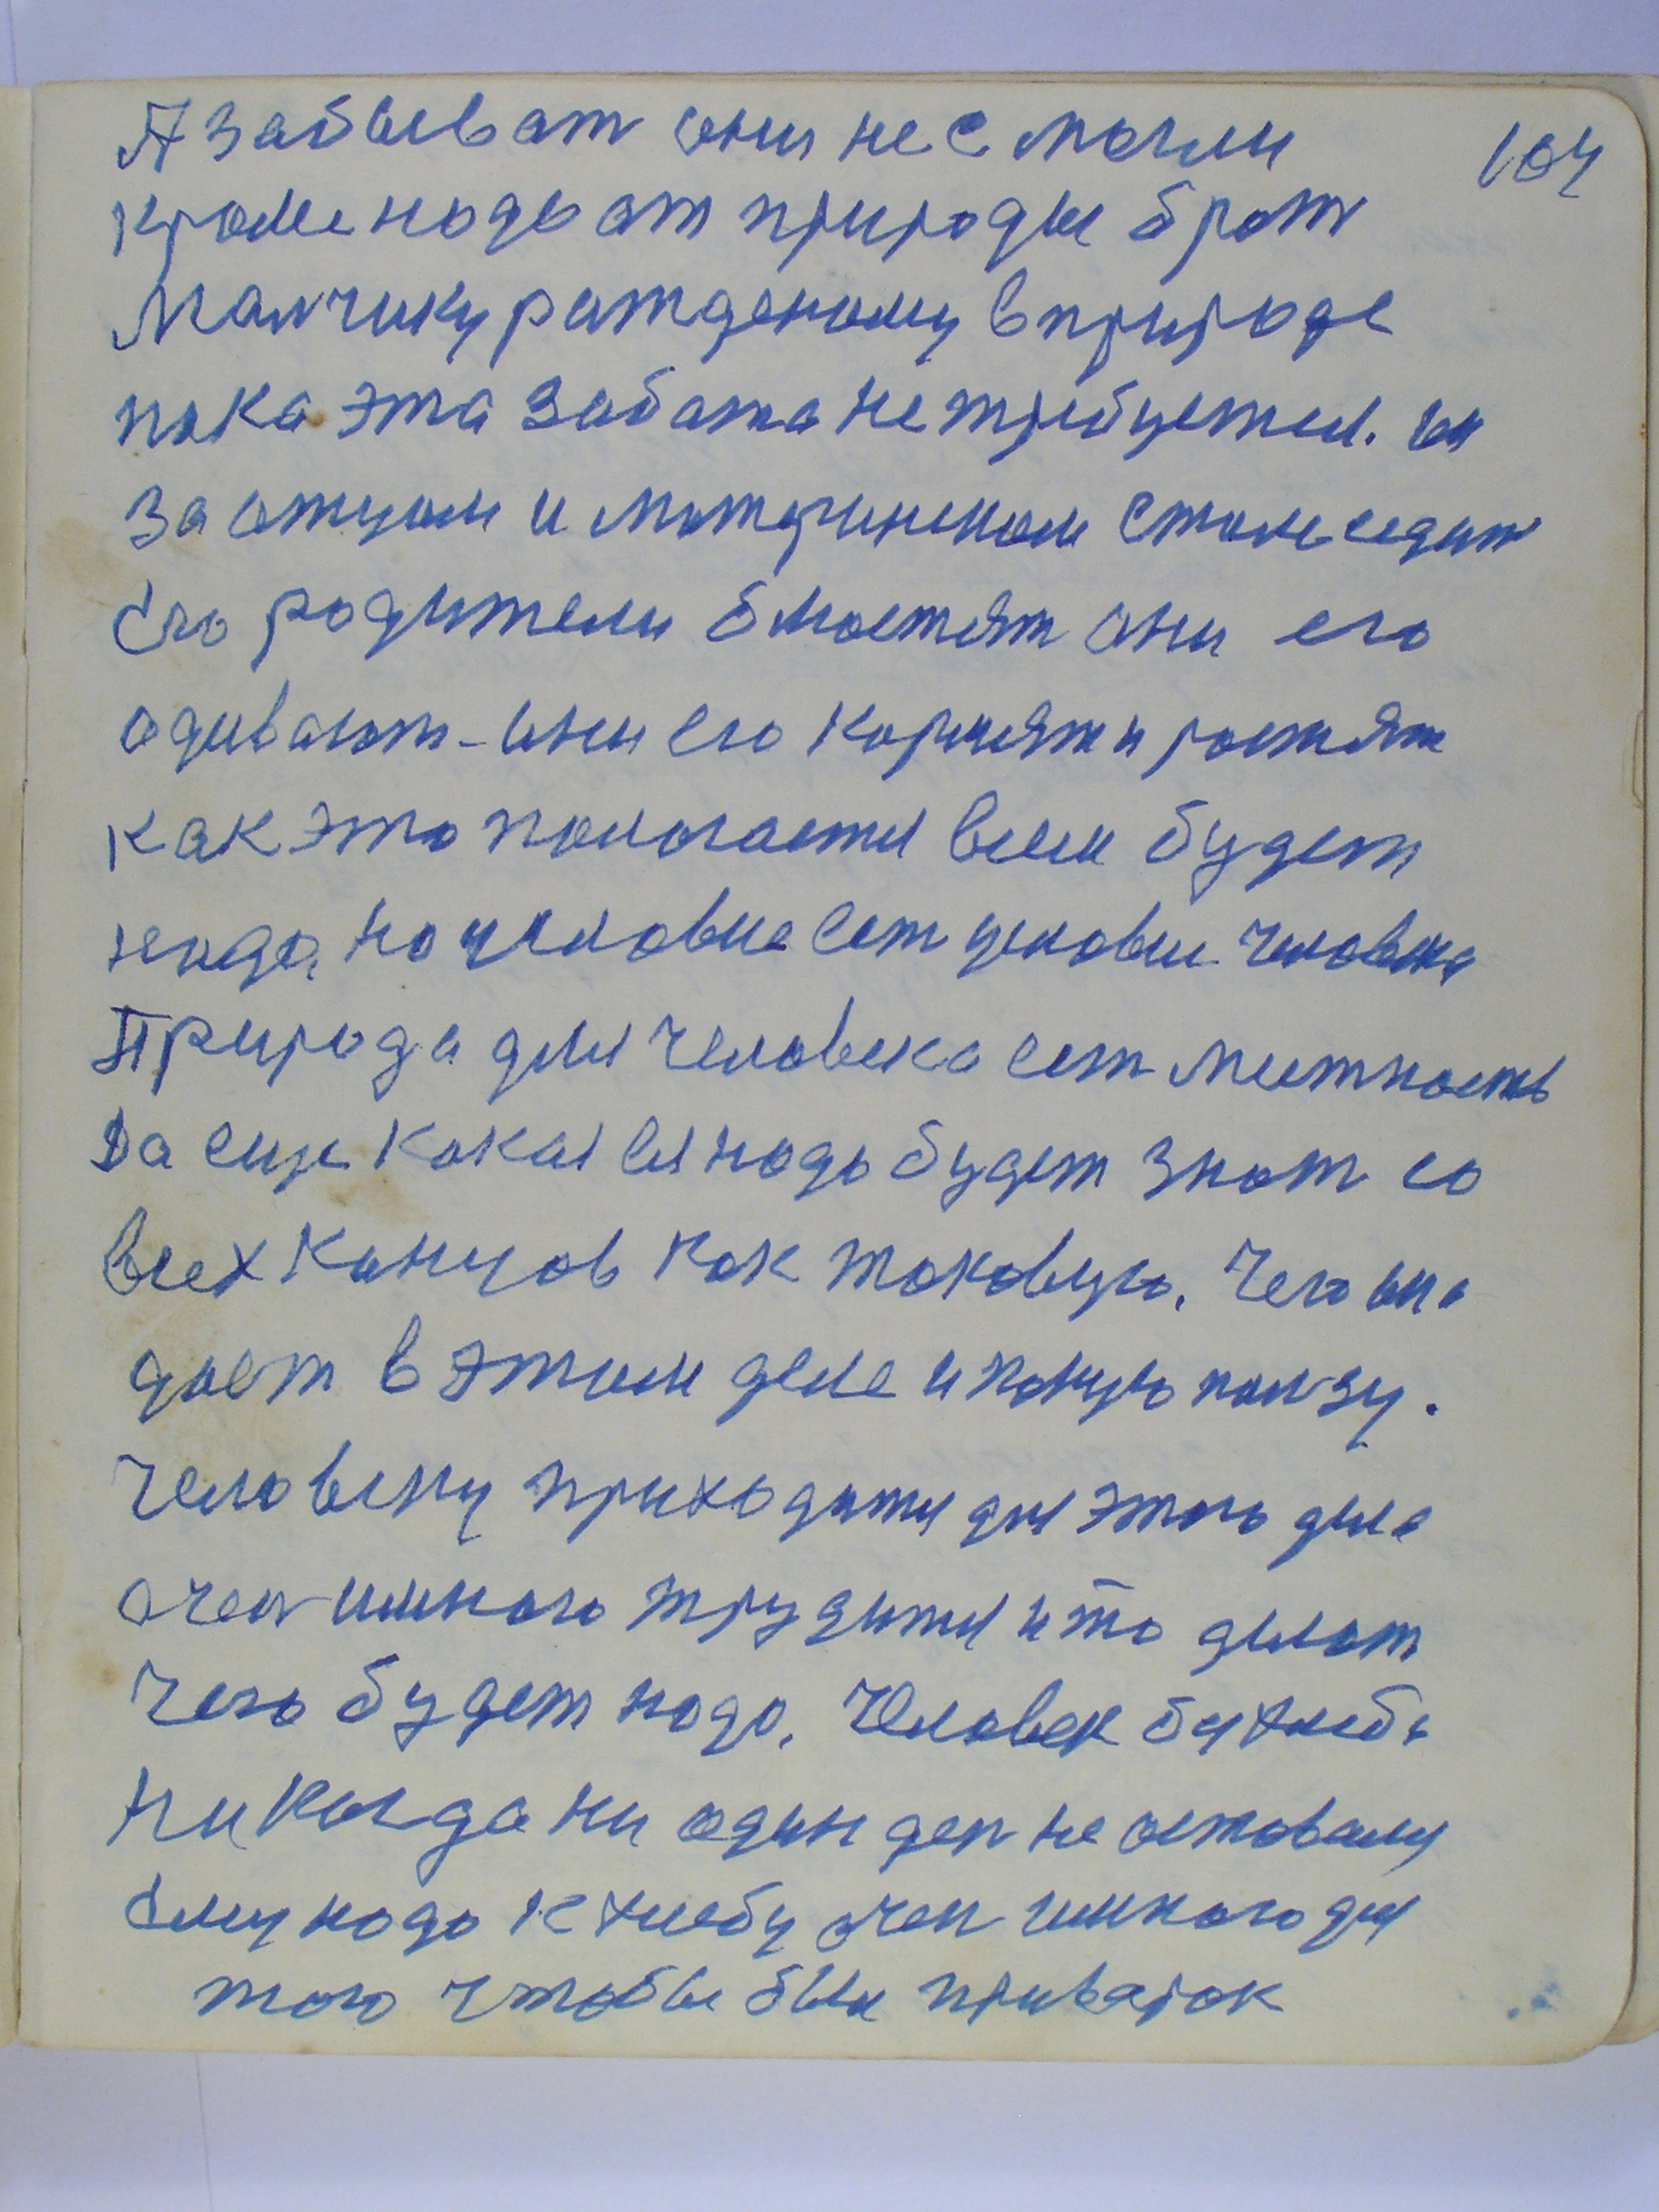 104
А забыват они не смогли
кроме надо от природы брат
Малчику ражденому в природе
пока эта забота не требуется. он
за отцом и материнском столе седит
Его родители блюстят они его
одивают – они его кормят и ростят
как это пологается всем будет
надо. Но человек ест человек человека
Природа для человека ест местность
Да еще какая ея надо будет знат со
всех концов как таковую. Чего она
дает в этом деле и какую ползу.
Человеку приходится для этого дела
очен много трудится и то делат
Чего будет надо. Человек без хлеба
Никогда ни один ден не оставалц
Ему надо к хлебу очен много для
того чтобы был приварок